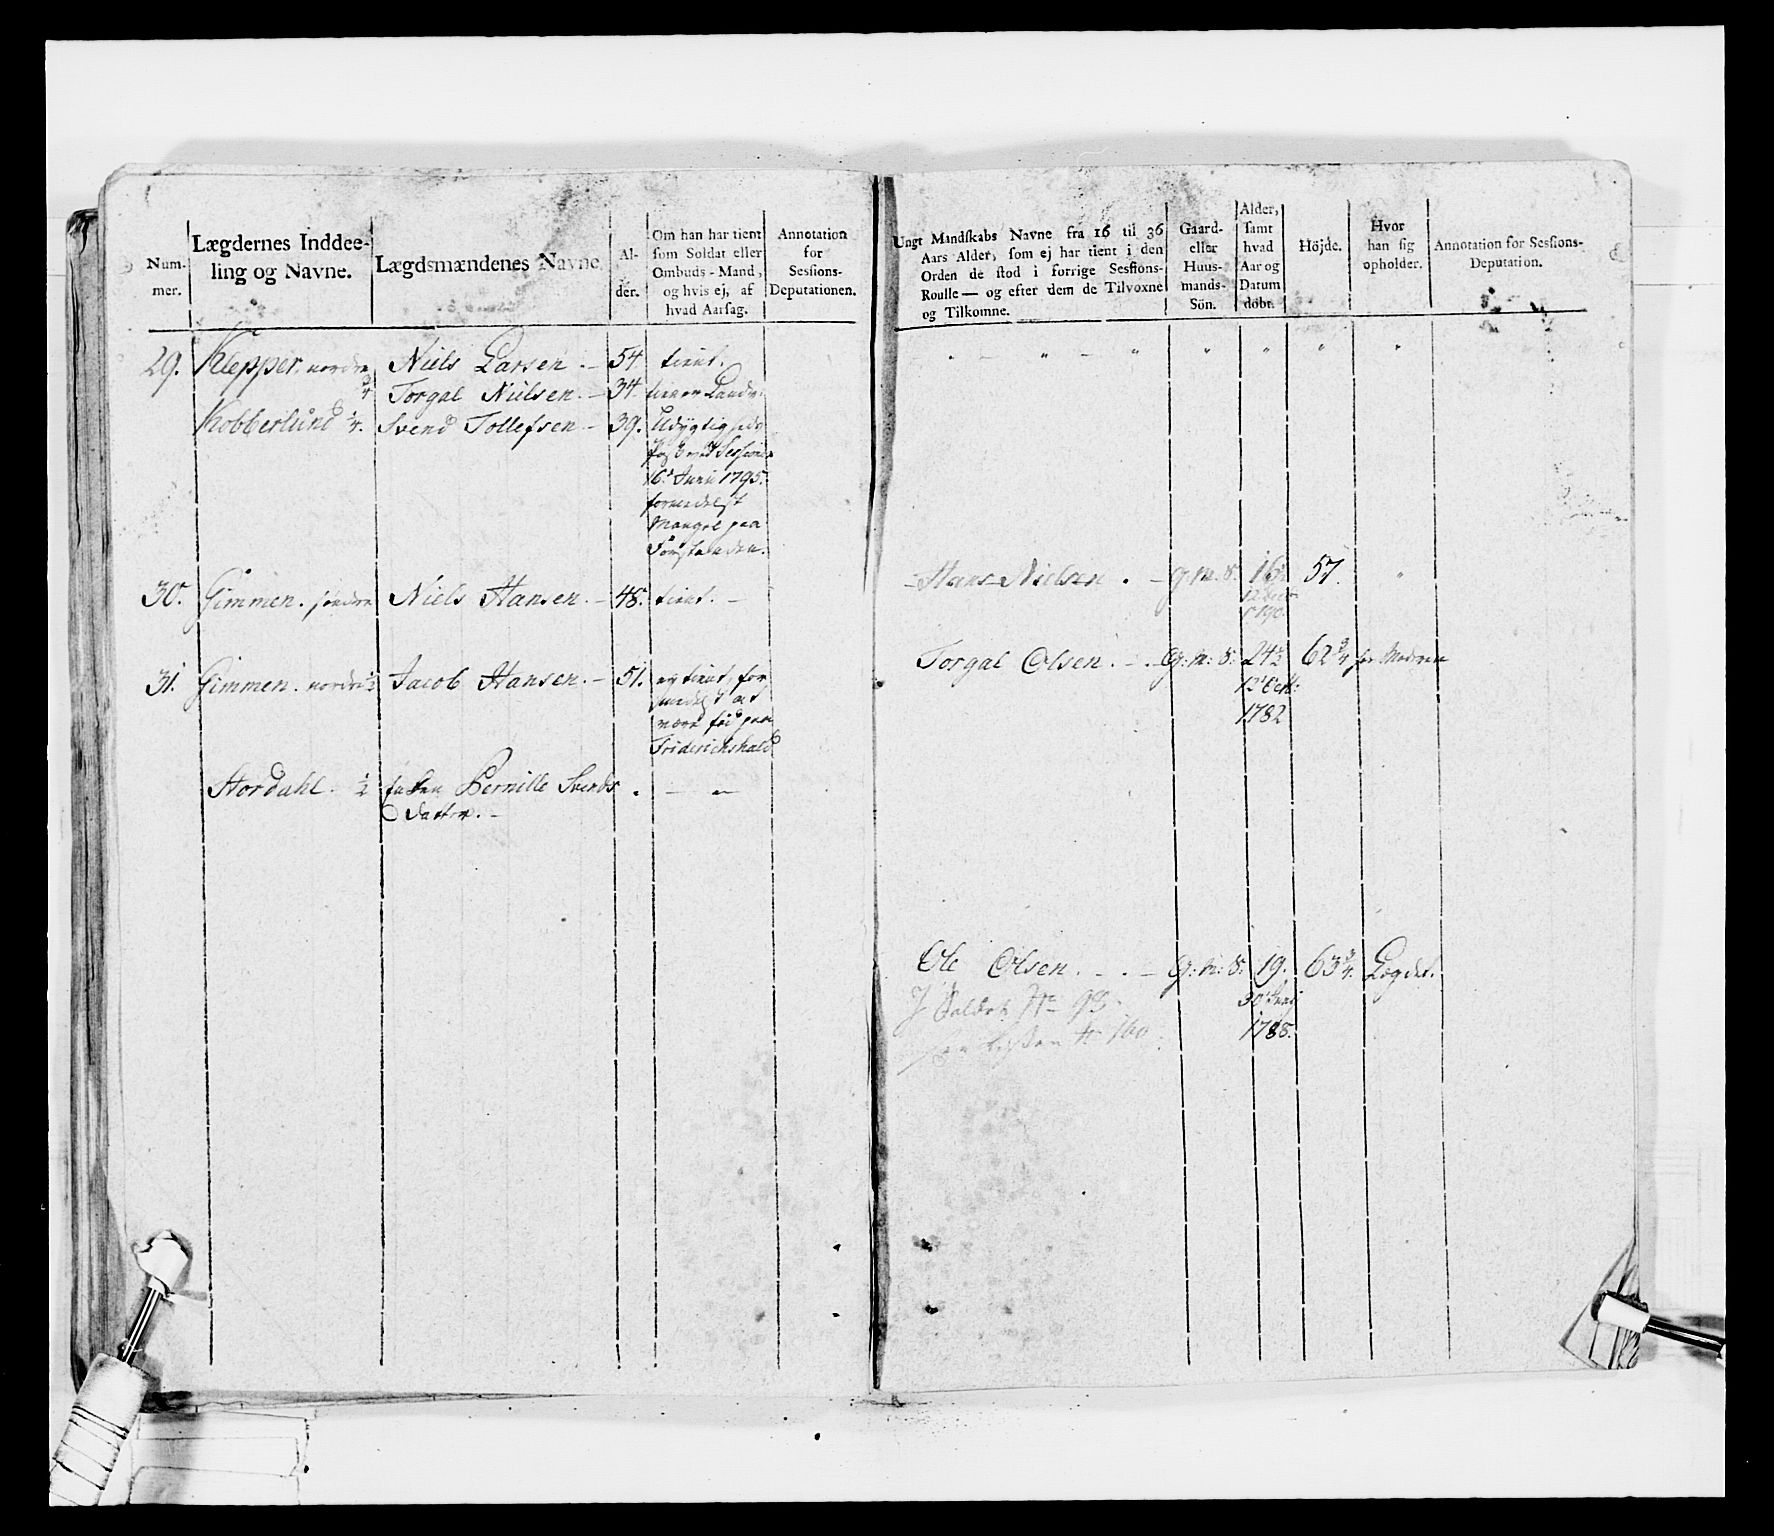 Num-
mer.
Lægdernes Inddee-
ling og Navne.
Lægdsmændenes Navne
Al-
der.
Om han har tient
som Soldat eller
Ombuds-Mand,
og hvis ej, af
hvad Aarsag.
Annotation
for
Sessions-
Deputationen.
29. Klepper, nordre 3/4 Niels Larsen. 54 tient.
Torgal Nielsen. 34.
Kobberlund 1/4. Svend Tollefsen 39. Udygtigheds
Pas ved Session
6t Junii 1795.
formedelst
Mangel paa
Forstanden.
30. Gimmen. søndre Niels Hansen. 48. tient.
31. Gimmen. nordre 1/2 Jacob Hansen. 51. ey tient, for
medelst at
være fød paa
Friderichshald
Stordahl. 1/2 Enken Pernille Svends
Datter.
Ungt Mandskabs Navne fra 16 til 36
Aars Alder, som ej har tient i den
Orden de stod i forrige Sessions-
Roulle — og efter dem de Tilvoxne
og Tilkomne.
Gaard-
eller
Huus-
mands-
Sön.
Alder,
samt
hvad
Aar og
Datum
döbt.
Höjde.
Hvor
han sig
opholder.
Annotation for Sessions-
Deputation.
Hans Nielsen. g: m: s: 16 57.
1790.
Torgal Olsen. G: m: s: 24 1/2 62 3/4
12 Octb:
1782
Ole Olsen. G: m: s: 19. 63 3/4. Lægdet.
30 Junij
1788.
No 98
160